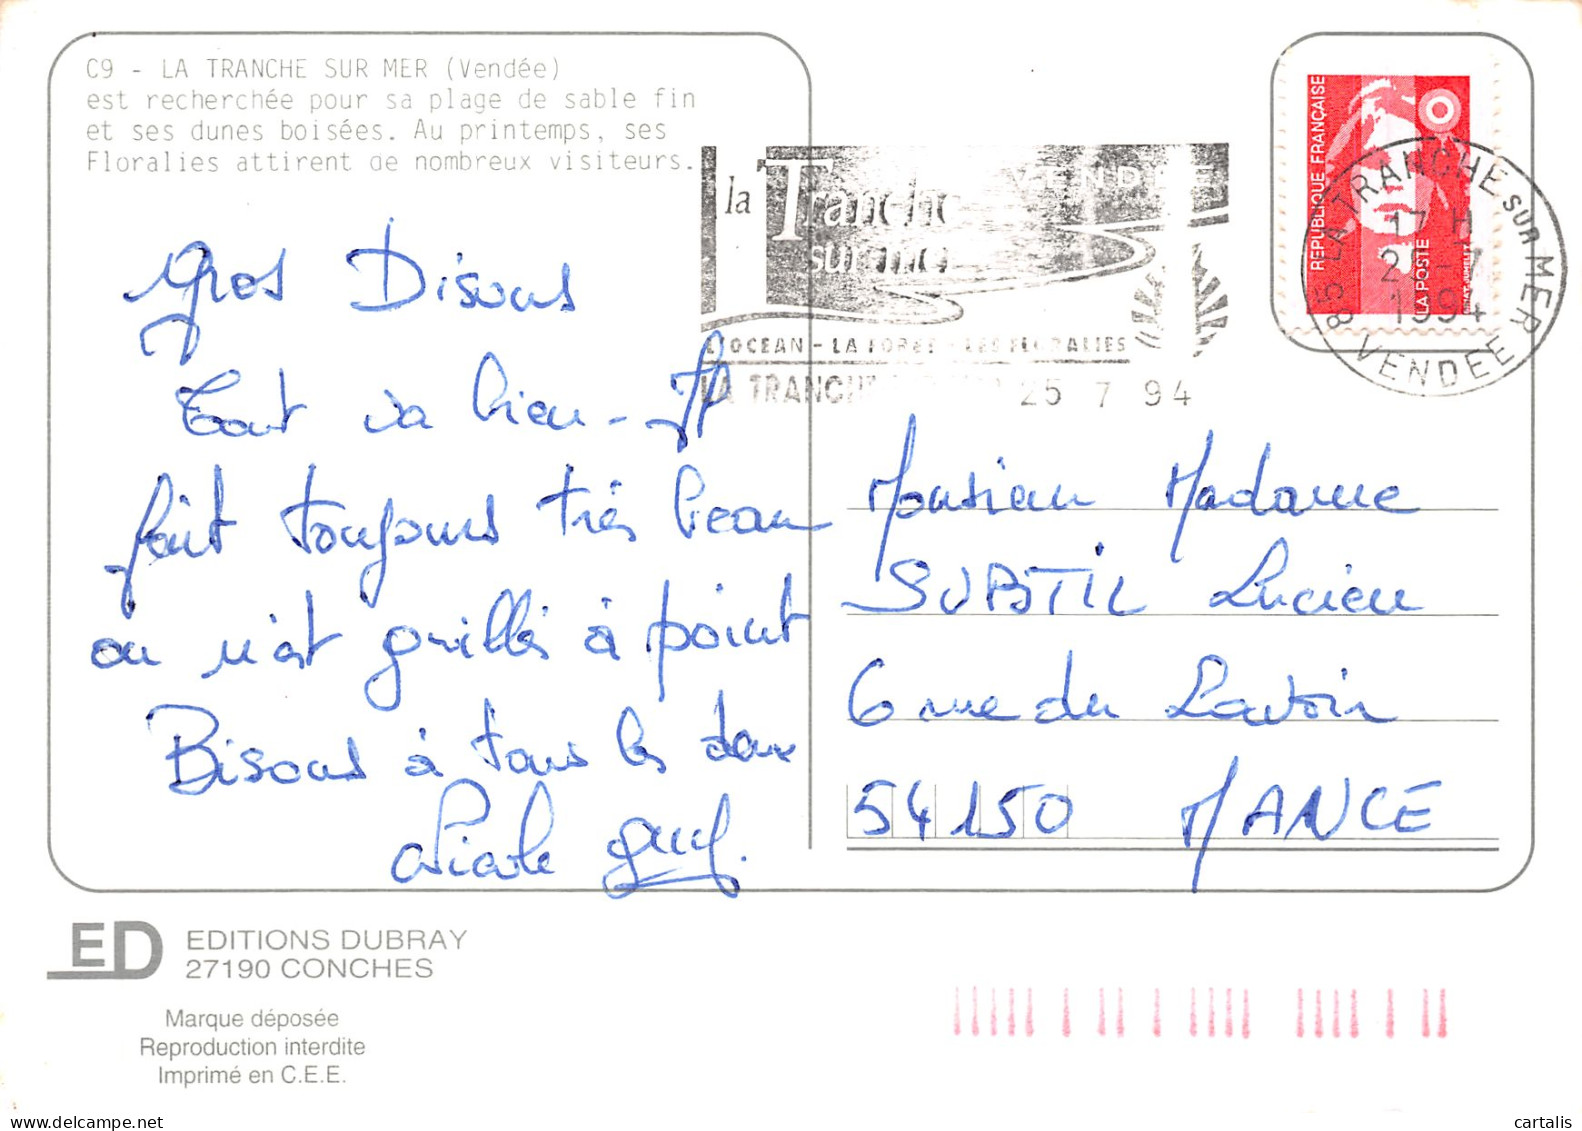 C9 - LA TRANCHE SUR MER (Vendée)
est recherchée pour sa plage de sable fin
et ses dunes boisées. Au printemps, ses
Floralies attirent de nombreux visiteurs.
la Tranche
sur mer
VENDEE
L'OCEAN - LA FORET - LES FLORALIES
LA TRANCHE 25 7 94
REPUBLIQUE FRANÇAISE
LA POSTE
85 LA TRANCHE SUR MER
17 H
25-7
1994
VENDEE
Gros Bisous
Tout va bien - Il
fait toujours très beau
on n'est grillés à point
Bisous à tous les deux
Nicole Guy.
Monsieur Madame
SUBTIL Lucien
6 rue du Lavoir
54150 MANCE
ED EDITIONS DUBRAY
27190 CONCHES
Marque déposée
Reproduction interdite
Imprimé en C.E.E.
cartalis